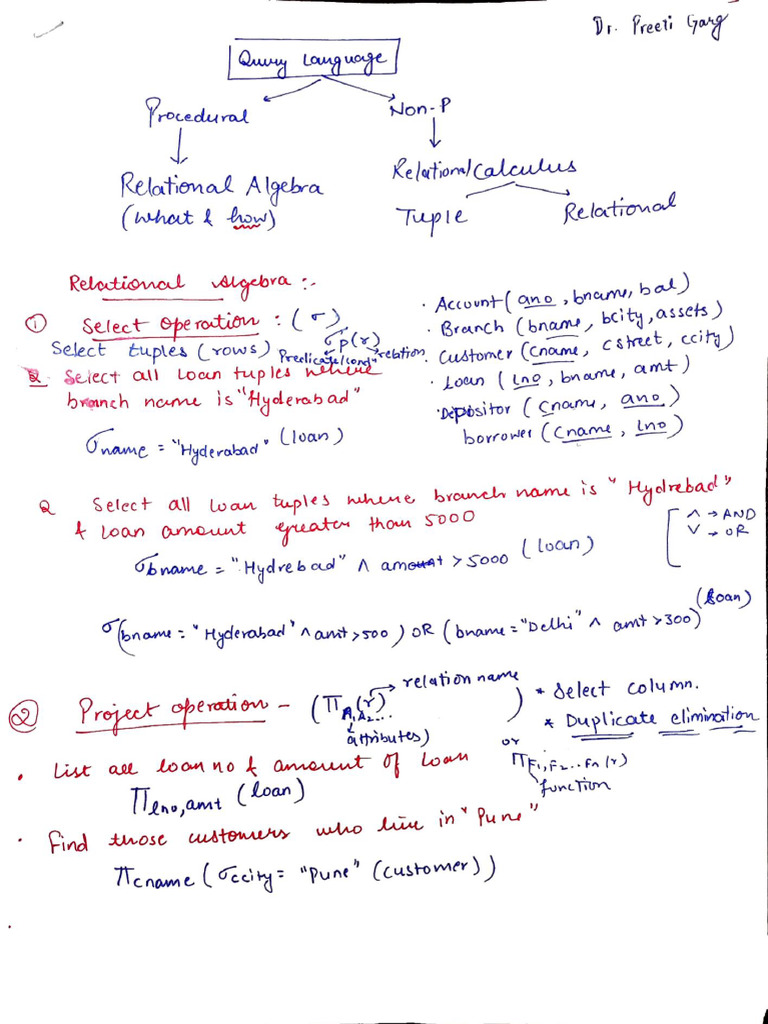 Dr. Preeti Garg
Query Language
Procedural
Non-P
Relational Algebra
(what & how)
Relational Calculus
Tuple
Relational
Relational Algebra :-
① Select operation : (σ)
Select tuples (rows) σp(r)
Predicate/condn relation
Q. Select all loan tuples where
branch name is "Hyderabad"
σname = "Hyderabad" (loan)
· Account (ano, bname, bal)
· Branch (bname, bcity, assets)
· Customer (cname, cstreet, ccity)
· Loan (lno, bname, amt)
· Depositor (cname, ano)
borrower (cname, lno)
Q Select all loan tuples where branch name is "Hydrebad"
& loan amount greater than 5000
σbname = "Hydrebad" ∧ amount > 5000 (loan)
∧ → AND
∨ → OR
σ(bname = "Hyderabad" ∧ amt > 500) OR (bname = "Delhi" ∧ amt > 300) (loan)
② Project operation - (ΠA1,A2...(r))
relation name
attributes)
* Select column.
* Duplicate elimination
or ΠF1,F2..Fn(r)
function
· List all loan no & amount of loan
Πlno,amt (loan)
· Find those customers who live in "Pune"
Πcname (σccity = "Pune" (customer))